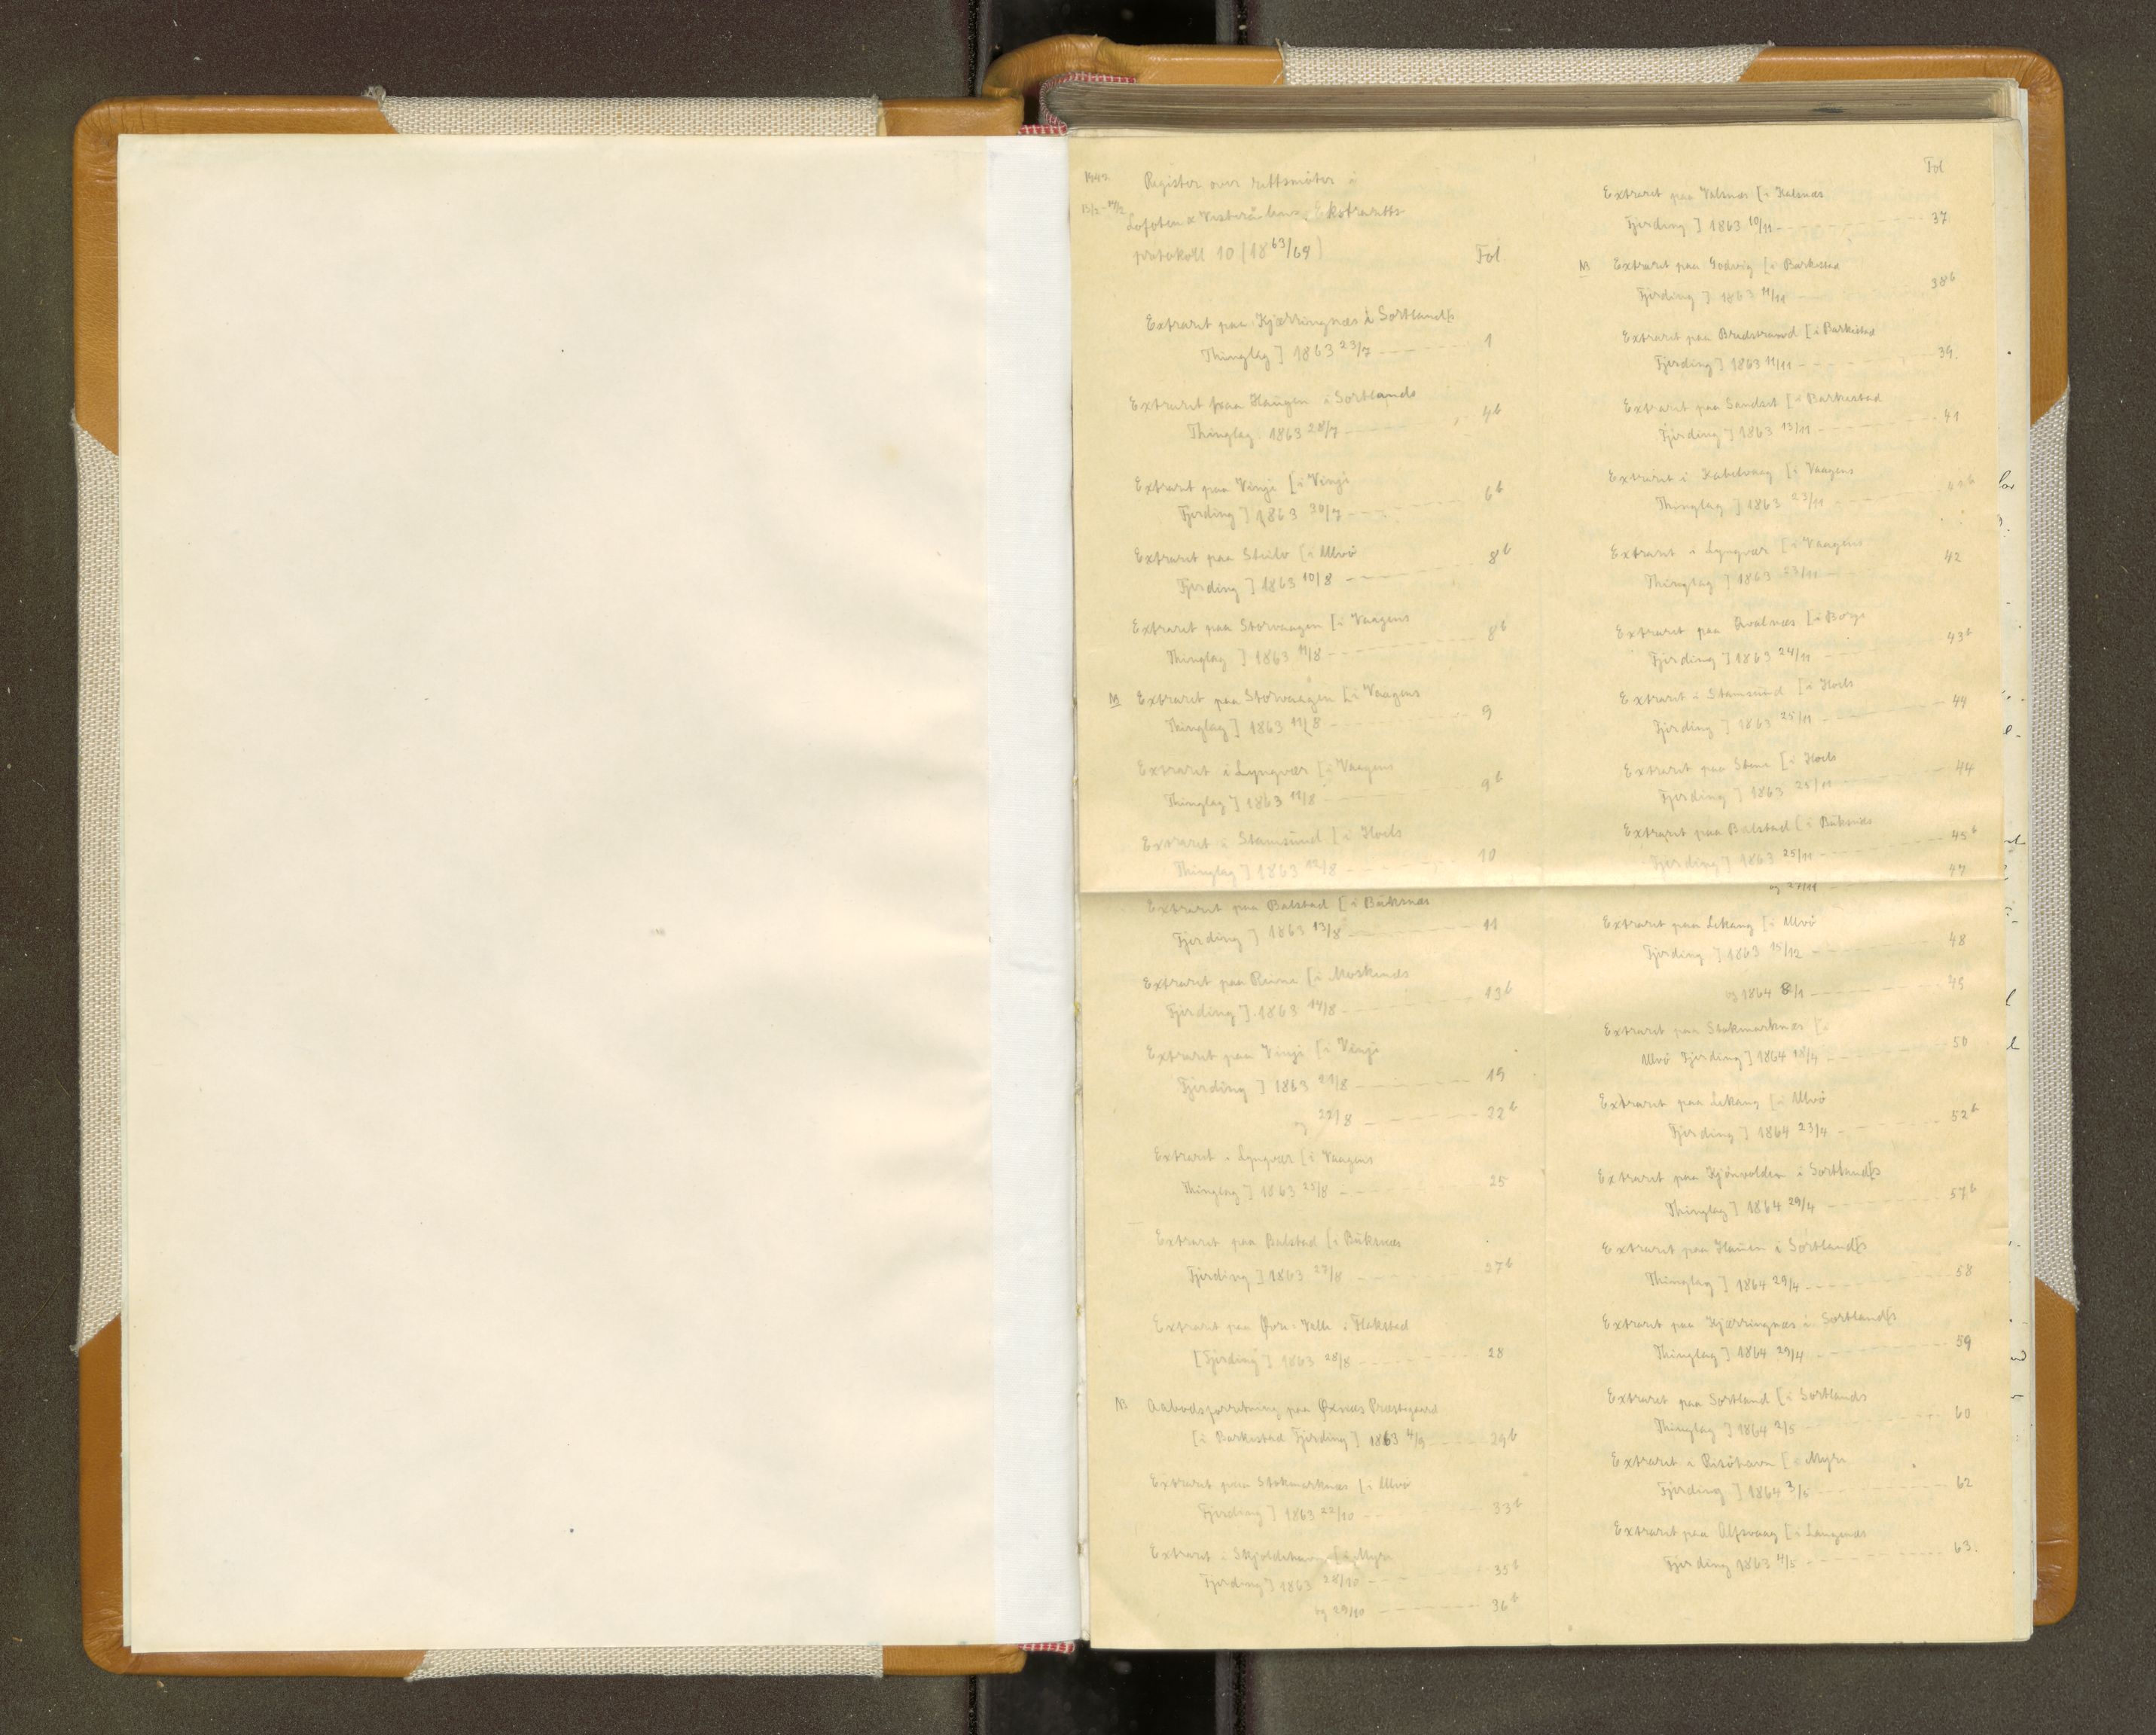 1942
13/2–14/2
Register over rettsmöter i
Lofoten & Vesterålens Ekstraretts
protokoll 10 (18 63/64)
Fol
Extraret paa Kjærringnæs i Sortland[s
Thinglag] 1863 23/7 ---- 1
Extraret paa Haugen i Sortlands
Thinglag 1863 28/7 ---- 4b
Extraret paa Vinje [i Vinje
Fjerding] 1863 30/7 ---- 6b
Extraret paa Steilo [i Ulvö
Fjerding] 1863 10/8 ---- 8b
Extraret paa Storvaagen [i Vaagens
Thinglag] 1863 11/8 ---- 8b
NB Extraret paa Storvaagen [i Vaagens
Thinglag] 1863 11/8 ---- 9
Extraret i Lyngvær [i Vaagens
Thinglag] 1863 11/8 ---- 9b
Extraret i Stamsund [i Hoels
Thinglag] 1863 12/8 ---- 10
Extraret paa Balstad [i Buksnæs
Fjerding] 1863 13/8 ---- 11
Extraret paa Reine [i Moskenæs
Fjerding] 1863 14/8 ---- 13b
Extraret paa Vinje [i Vinje
Fjerding] 1863 21/8 ---- 19
og 22/8 ---- 22b
Extraret i Lyngvær [i Vaagens
Thinglag] 1863 25/8 ---- 25
Extraret paa Balstad [i Buksnæs
Fjerding] 1863 27/8 ---- 27b
Extraret paa Øvre-Velle i Flakstad
[Fjerding] 1863 28/8 ---- 28
NB Aabodsforretning paa Øxnæs Præstegaard
[i Barkestad Fjerding] 1863 4/9 ---- 29b
Extraret paa Stokmarknæs [i Ulvö
Fjerding] 1863 22/10 ---- 33b
Extraret i Skjoldehavn [i Myre
Fjerding] 1863 28/10 ---- 35b
og 29/10 ---- 36b
Fol
Extraret paa Valsnæs [i
Fjerding] 1863 10/11 ---- 37
NB Extraret paa Godvig [i Barkestad
Fjerding] 1863 11/11 ---- 38b
Extraret paa Bredstrand [i Barkestad
Fjerding] 1863 11/11 ---- 39.
Extraret paa Sandset [i Barkestad
Fjerding] 1863 13/11 ---- 41
Extraret i Kabelvaag [i Vaagens
Thinglag] 1863 23/11 ----
Extraret i Lyngvær [i Vaagens
Thinglag] 1863 23/11 ---- 42
Extraret paa Qvalnæs [i Borge
Fjerding] 1863 24/11 ---- 43b
Extraret i Stamsund [i Hoels
Fjerding] 1863 25/11 ---- 44
Extraret paa Steine [i Hoels
Fjerding] 1863 25/11 ---- 44
Extraret paa Balstad [i Buksnæs
Fjerding] 1863 25/11 ---- 45b
og 27/11 47
Extraret paa Lekang [i Ulvö
Fjerding] 1863 15/12 ---- 48
og 1864 8/1 ---- 49
Extraret paa Stokmarknæs [i
Ulvö Fjerding] 1864 18/4 ---- 50
Extraret paa Lekang [i Ulvö
Fjerding] 1864 23/4 ---- 52b
Extraret paa Kjönvolden i Sortland[s
Thinglag] 1864 29/4 ---- 57b
Extraret paa Haúen i Sortland[s
Thinglag] 1864 29/4 ---- 58
Extraret paa Kjærringnæs i Sortland[s
Thinglag] 1864 29/4 ---- 59
Extraret paa Sortland [i Sortlands
Thinglag] 1864 2/5 ---- 60
Extraret i Risöhavn [i Myre
Fjerding] 1864 3/5 ---- 62
Extraret paa Alfsvaag [i Langenæs
Fjerding 1863 4/5 ---- 63.